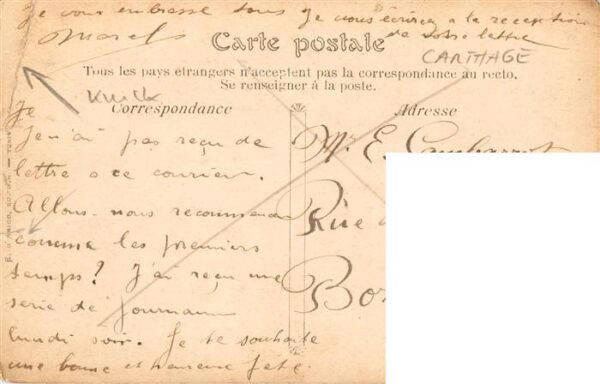 Je vous embrasse tous Je vous écrirez a la reception
de votre lettre
Marcel
Carte postale
CARTHAGE
Tous les pays étrangers n'acceptent pas la correspondance au recto.
Se renseigner à la poste.
Knick
Correspondance
Adresse
Je
Je n'ai pas reçu de
lettre a ce courrier.
Allons-nous recommencer
comme les premiers
temps? J'ai reçu une
serie de journaux
lundi soir. Je te souhaite
une bonne et heureuse fête.
Mr E.
Rue
Bo